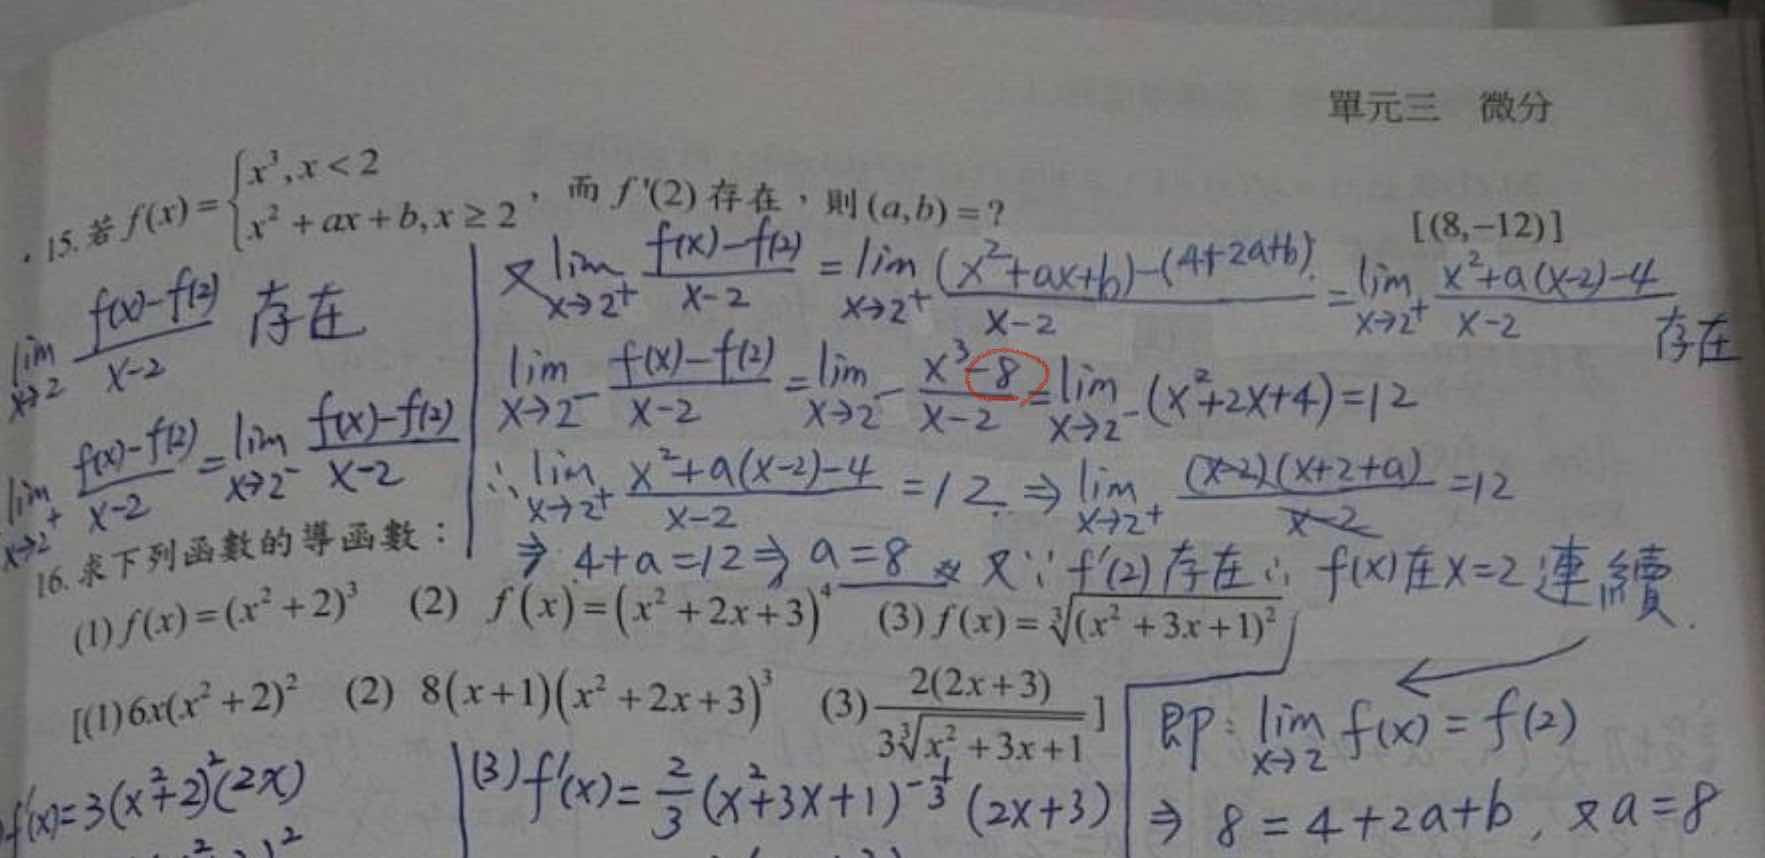 單元三 微分
15. 若 f(x) = { x³, x < 2
x² + ax + b, x ≥ 2 ，而 f'(2) 存在，則 (a,b) = ?
[(8,−12)]
lim x→2 (f(x)−f(2))/(x−2) 存在
lim x→2⁺ (f(x)−f(2))/(x−2) = lim x→2⁻ (f(x)−f(2))/(x−2)
又 lim x→2⁺ (f(x)−f(2))/(x−2) = lim x→2⁺ ((x²+ax+b)−(4+2a+b))/(x−2) = lim x→2⁺ (x²+a(x−2)−4)/(x−2) 存在
lim x→2⁻ (f(x)−f(2))/(x−2) = lim x→2⁻ (x³−8)/(x−2) = lim x→2⁻ (x²+2x+4)=12
∴ lim x→2⁺ (x²+a(x−2)−4)/(x−2) = 12 ⇒ lim x→2⁺ ((x−2)(x+2+a))/(x−2) = 12
⇒ 4+a=12 ⇒ a=8 又∵ f'(2) 存在 ∴ f(x)在x=2 連續.
即: lim x→2 f(x) = f(2)
⇒ 8 = 4+2a+b, 又a=8
16. 求下列函數的導函數：
(1) f(x) = (x² + 2)³ (2) f(x) = (x² + 2x + 3)⁴ (3) f(x) = ∛((x² + 3x + 1)²)
[(1) 6x(x² + 2)² (2) 8(x+1)(x² + 2x + 3)³ (3) 2(2x+3)/(3∛(x² + 3x + 1)) ]
f'(x)=3(x²+2)²(2x)
(3) f'(x) = 2/3 (x²+3x+1)^(−1/3) (2x+3)